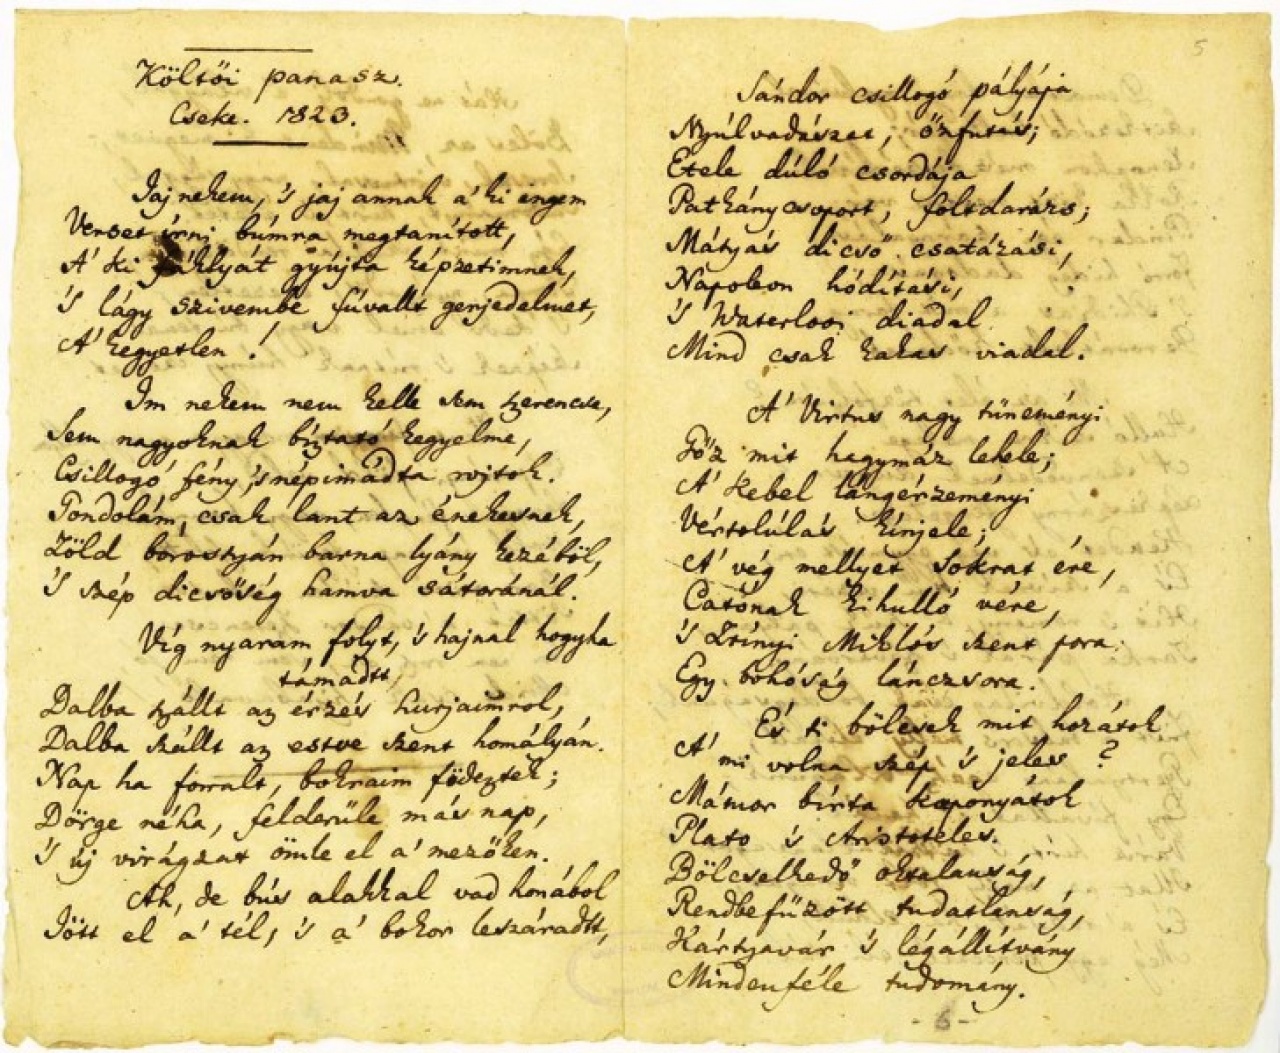 Költői panasz.
Cseke. 1823.
Jaj nekem, 's jaj annak a' ki engem
Verset írni búmra megtanított,
A' ki fáklyát gyújta képzetimnek,
'S lágy szivembe fúvallt gerjedelmet,
A' kegyetlen!
Im nekem nem kelle sem szerencse,
Sem nagyoknak bíztató kegyelme,
Csillogó fény, 's népimádta rojtok.
Gondolám, csak lant az énekesnek,
Zöld borostyán barna lyány kezéből,
'S szép dicsőség hamva sátoránál.
Víg nyaram folyt, 's hajnal hogyha
támadtt,
Dalba szállt az érzés hurjaimrol,
Dalba szállt az estve szent homályán.
Nap ha forralt, bokraim födeztek;
Dörge néha, felderűle más nap,
'S új virágzat ömle el a' mezőken.
Ah, de bús alakkal vad honából
Jött el a' tél, 's a' bokor leszáradtt,
5
Sándor csillogó pályája
Nyúlvadászat, őzfutás;
Etele dúló csordája
Patkánycsoport, földarázs;
Mátyás dicső csatázási,
Napoleon hódítási,
'S Waterlooi diadal
Mind csak kakas viadal.
A' Virtus nagy tüneményi
Gőz mit hagymáz lehele;
A' kebel lángérzeményi
Vértolúlás kínjele;
A' vég mellyet Sokrat ére,
Catónak kihulló vére,
'S Zrínyi Miklós szent pora
Egy bohóság lánczsora.
És ti bölcsek mit hozátok
A' mi volna szép 's jeles?
Mámor bírta koponyátok
Plato 's Aristoteles.
Bölcselkedő oktalanság,
Rendbefűzött tudatlanság,
Kártyavár 's légállítvány
Mindenféle tudomány.
- 6 -